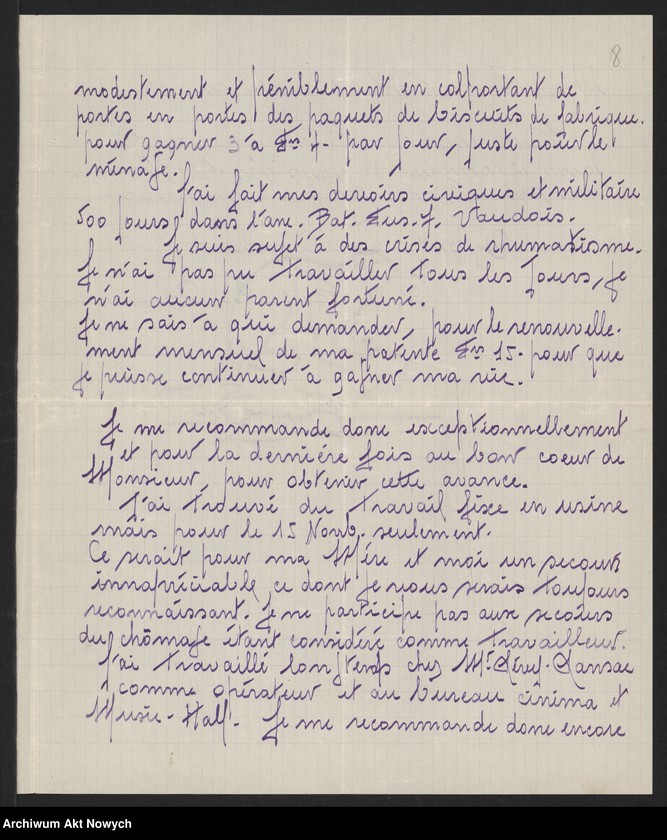 8
modestement et péniblement en colportant de
portes en portes des paquets de biscuits de fabrique.
pour gagner 3 à Frs 4- par jour, juste pour le
ménage.
J'ai fait mes devoirs civiques et militaire
500 jours dans l'arm. Bat. Fus. 7. Vaudois.
Je suis sujet à des crises de rhumatisme.
Je n'ai pas pu travailler tous les jours, je
n'ai aucun parent fortuné.
Je ne sais à qui demander, pour le renouvelle-
ment mensuel de ma patente Frs 15- pour que
je puisse continuer à gagner ma vie.
Je me recommande donc exceptionnellement
et pour la dernière fois au bon coeur de
Monsieur, pour obtenir cette avance.
J'ai trouvé du travail fixe en usine
mais pour le 15 Novb. seulement.
Ce serait pour ma Mère et moi un secours
innapréciable, ce dont je vous serais toujours
reconnaissant. Je ne participe pas aux secours
du chômage étant considéré comme travailleur.
J'ai travaillé longtemps chez Mr
comme opérateur et au bureau cinima et
Music-Hall. Je me recommande donc encore
Archiwum Akt Nowych